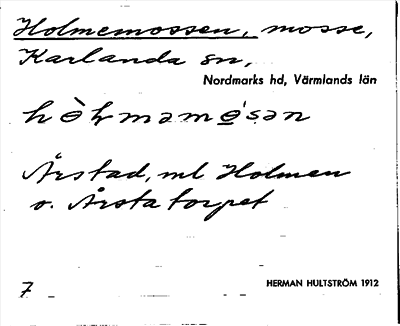 Holmemossen, mosse,
Karlanda sn,
Nordmarks hd, Värmlands län
Årstad, ml Holmen
o. Årsta torpet
7
HERMAN HULTSTRÖM 1912